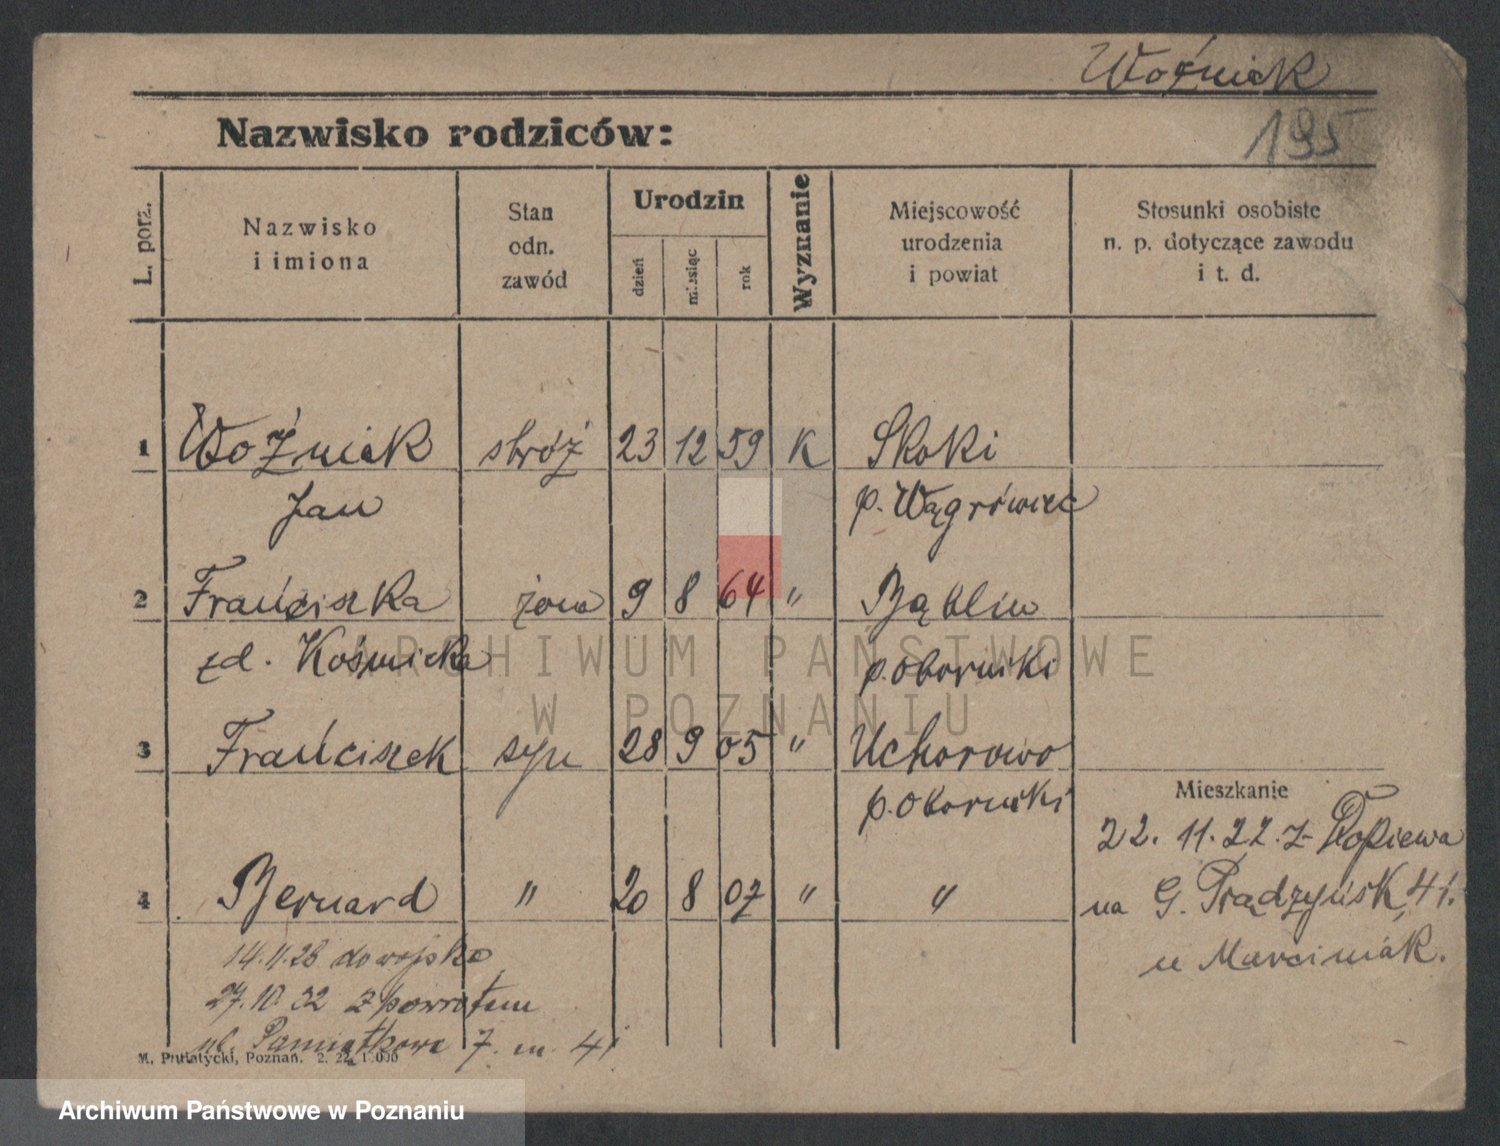 Woźniak
Nazwisko rodziców:
195
L. porz.
Nazwisko
i imiona
Stan
odn.
zawód
Urodzin
dzień
miesiąc
rok
Wyznanie
Miejscowość
urodzenia
i powiat
Stosunki osobiste
n. p. dotyczące zawodu
i t. d.
1 Woźniak stróż 23 12 59 K Skoki
Jan p. Wągrówiec
2 Franciszka żona 9 8 64 " Bąblin
zd. Kośmicka p. Oborniki
ARCHIWUM PAŃSTWOWE
W POZNANIU
3 Franciszek syn 28 9 05 " Uchorowo
p. Oborniki
Mieszkanie
22. 11. 22. z Dopiewa
4 Bernard " 20 8 07 " "
na G. Prądzyńsk, 41.
u Marciniak.
14.11.28 do wojska
27.10.32 z powrotem
ul. Pamiątkowa 7. m. 41
M. Putiatycki, Poznań. 2. 22. 1.000
Archiwum Państwowe w Poznaniu